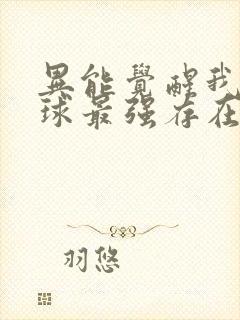 異能覺醒我
球最强存在
羽悠